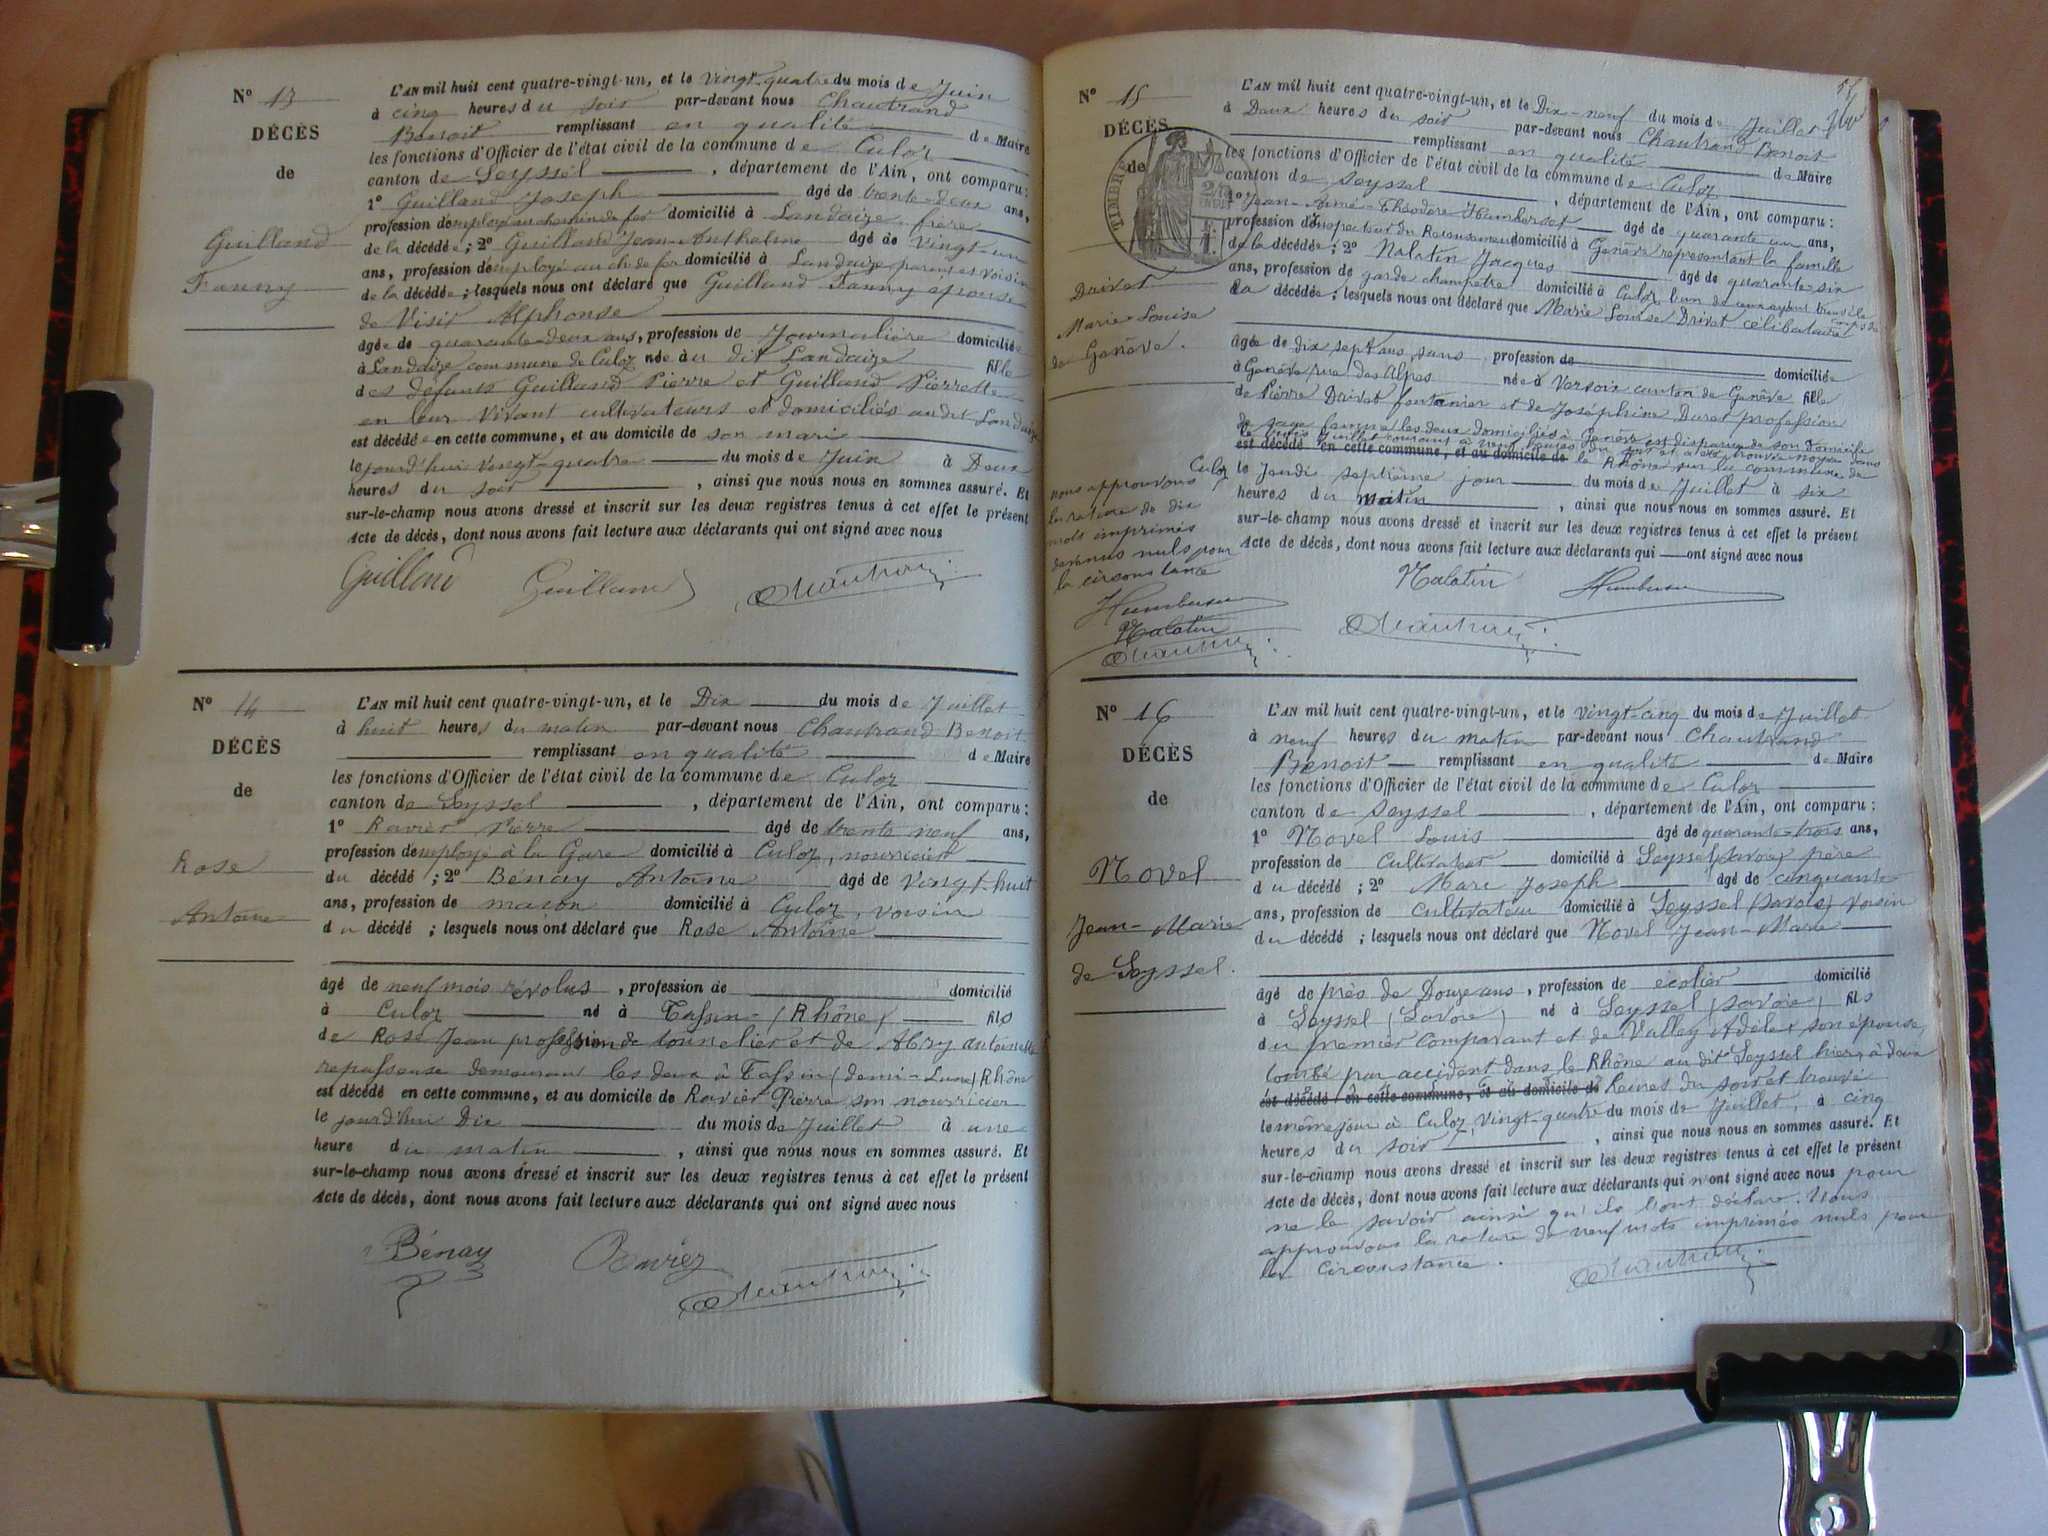 N° 13
DÉCÈS
de
Guilland
Fanny
L'AN mil huit cent quatre-vingt-un, et le vingt-quatre du mois de Juin
à cinq heures du soir par-devant nous Chautrand
Benoit remplissant en qualité de Maire
les fonctions d'Officier de l'état civil de la commune de Culoz
canton de Seyssel, département de l'Ain, ont comparu:
1° Guilland Joseph âgé de trente-deux ans,
profession d'employé au chemin de fer domicilié à Landaize frère
de la décédée; 2° Guilland Jean-Anthelme âgé de vingt-un
ans, profession d'employé au ch. de fer domicilié à Landaize parent et voisin
de la décédée; lesquels nous ont déclaré que Guilland Fanny épouse
de Visir Alphonse
âgée de quarante-deux ans, profession de Journalière domiciliée
à Landaize commune de Culoz née au dit Landaize fille
des défunts Guilland Pierre et Guilland Pierrette
en leur vivant cultivateurs et domiciliés au dit Landaize
est décédée en cette commune, et au domicile de son mari
le jourd'hui vingt-quatre du mois de Juin à Deux
heures du soir, ainsi que nous nous en sommes assuré. Et
sur-le-champ nous avons dressé et inscrit sur les deux registres tenus à cet effet le présent
Acte de décès, dont nous avons fait lecture aux déclarants qui ont signé avec nous
Guilland Guilland Chautrand
N° 14
DÉCÈS
de
Rose
Antoine
L'AN mil huit cent quatre-vingt-un, et le Dix du mois de Juillet
à huit heures du matin par-devant nous Chautrand Benoit
remplissant en qualité de Maire
les fonctions d'Officier de l'état civil de la commune de Culoz
canton de Seyssel, département de l'Ain, ont comparu:
1° Ravier Pierre âgé de trente neuf ans,
profession d'employé à la Gare domicilié à Culoz, nourricier
du décédé; 2° Bénay Antoine âgé de vingt-huit
ans, profession de maçon domicilié à Culoz, voisin
du décédé; lesquels nous ont déclaré que Rose Antoine
âgé de neuf mois révolus, profession de domicilié
à Culoz né à Tassin (Rhône) fils
de Rose Jean profession de tonnelier et de Abry Antoinette
repasseuse demeurant les deux à Tassin (demi-Lune) Rhône
est décédé en cette commune, et au domicile de Ravier Pierre son nourricier
le jourd'hui Dix du mois de Juillet à une
heure du matin, ainsi que nous nous en sommes assuré. Et
sur-le-champ nous avons dressé et inscrit sur les deux registres tenus à cet effet le présent
Acte de décès, dont nous avons fait lecture aux déclarants qui ont signé avec nous
Bénay Ravier Chautrand
N° 15
DÉCÈS
de
TIMBRE
Drivet
Marie-Louise
de Genève.
L'AN mil huit cent quatre-vingt-un, et le Dix-neuf du mois de Juillet
à Deux heures du soir par-devant nous Chautrand Benoit
remplissant en qualité de Maire
les fonctions d'Officier de l'état civil de la commune de Culoz
canton de Seyssel, département de l'Ain, ont comparu:
1° Jean-Aimé-Théodore Humberset âgé de quarante un ans,
profession d'Inspecteur du Recensement domicilié à Genève représentant la famille
de la décédée; 2° Nalatin Jacques âgé de quarante-six
ans, profession de garde champêtre domicilié à Culoz l'un de ceux ayant trouvé le corps de
la décédée; lesquels nous ont déclaré que Marie Louise Drivet célibataire
âgée de dix sept ans, sans profession de domiciliée
à Genève, rue des Alpes née à Versoix canton de Genève fille
de Pierre Drivet fontenier et de Joséphine Duret profession
de sage femme les deux domiciliés à Genève est disparue de son domicile
le Juillet courant à neuf heures du soir et a été trouvée noyée dans
est décédé en cette commune, et au domicile de le Rhône sur la commune de
Culoz le Jeudi septième jour du mois de Juillet à six
heures du matin, ainsi que nous nous en sommes assuré. Et
sur-le-champ nous avons dressé et inscrit sur les deux registres tenus à cet effet le présent
Acte de décès, dont nous avons fait lecture aux déclarants qui ont signé avec nous
Nalatin Humberset
Chautrand
nous approuvons
la rature de dix
mots imprimés
devenus nuls pour
la circonstance
Humberset
Nalatin
Chautrand
N° 16
DÉCÈS
de
Novel
Jean-Marie
de Seyssel.
L'AN mil huit cent quatre-vingt-un, et le vingt-cinq du mois de Juillet
à neuf heures du matin par-devant nous Chautrand
Benoit remplissant en qualité de Maire
les fonctions d'Officier de l'état civil de la commune de Culoz
canton de Seyssel, département de l'Ain, ont comparu:
1° Novel Louis âgé de quarante-trois ans,
profession de Cultivateur domicilié à Seyssel (Savoie) père
du décédé; 2° Marc Joseph âgé de cinquante
ans, profession de cultivateur domicilié à Seyssel (Savoie) voisin
du décédé; lesquels nous ont déclaré que Novel Jean-Marie
âgé de près de Douze ans, profession de écolier domicilié
à Seyssel (Savoie) né à Seyssel (Savoie) fils
du premier Comparant et de Vallez Adèle, son épouse,
tombé par accident dans le Rhône au dit Seyssel hier, à deux
est décédé en cette commune, et au domicile de heures du soir et trouvé
le même jour à Culoz, vingt-quatre du mois de Juillet, à cinq
heures du soir, ainsi que nous nous en sommes assuré. Et
sur-le-champ nous avons dressé et inscrit sur les deux registres tenus à cet effet le présent
Acte de décès, dont nous avons fait lecture aux déclarants qui n'ont signé avec nous pour
ne le savoir ainsi qu'ils l'ont déclaré. Nous
approuvons la rature de neuf mots imprimés nuls pour
la circonstance.
Chautrand